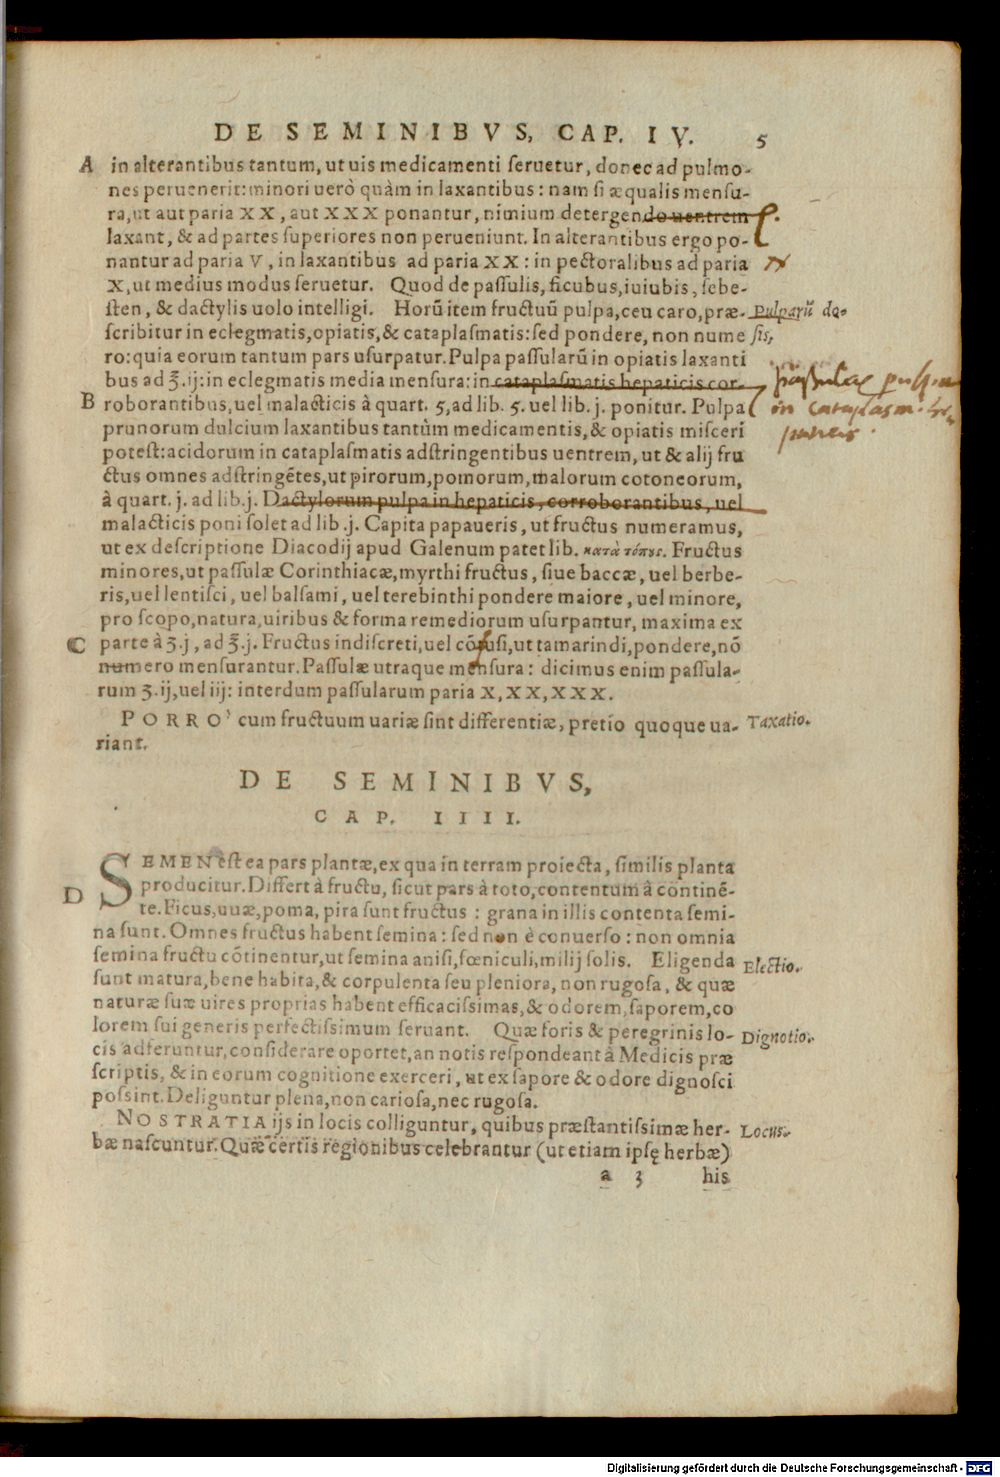 DE SEMINIBVS, CAP. IV. 5
A in alterantibus tantum, ut uis medicamenti seruetur, donec ad pulmo-
nes peruenerit: minori uerò quàm in laxantibus: nam si æqualis mensu-
ra, ut aut paria XX, aut XXX ponantur, nimium detergendo uentrem
laxant, & ad partes superiores non perueniunt. In alterantibus ergo po-
nantur ad paria V, in laxantibus ad paria XX: in pectoralibus ad paria
X, ut medius modus seruetur. Quod de passulis, ficubus, iuiubis, sebe-
sten, & dactylis uolo intelligi. Horũ item fructuũ pulpa, ceu caro, præ- Pulparũ do-
scribitur in eclegmatis, opiatis, & cataplasmatis: sed pondere, non nume sis,
ro: quia eorum tantum pars usurpatur. Pulpa passularũ in opiatis laxanti
bus ad ʒ. ij: in eclegmatis media mensura: in cataplasmatis hepaticis cor- passulae pulpa
B roborantibus, uel malacticis à quart. 5, ad lib. 5. uel lib. j. ponitur. Pulpa in cataplasm.
prunorum dulcium laxantibus tantùm medicamentis, & opiatis misceri
potest: acidorum in cataplasmatis adstringentibus uentrem, ut & alij fru
ctus omnes adstringẽtes, ut pirorum, pomorum, malorum cotoneorum,
à quart. j. ad lib. j. Dactylorum pulpa in hepaticis, corroborantibus, uel
malacticis poni solet ad lib. j. Capita papaueris, ut fructus numeramus,
ut ex descriptione Diacodij apud Galenum patet lib. κατὰ τόπυς. Fructus
minores, ut passulæ Corinthiacæ, myrthi fructus, siue baccæ, uel berbe-
ris, uel lentisci, uel balsami, uel terebinthi pondere maiore, uel minore,
pro scopo, natura, uiribus & forma remediorum usurpantur, maxima ex
C parte à ʒ. j, ad ℥. j. Fructus indiscreti, uel cõfusi, ut tamarindi, pondere, nõ
numero mensurantur. Passulæ utraque mensura: dicimus enim passula-
rum ʒ. ij, uel iij: interdum passularum paria X, XX, XXX.
PORRO' cum fructuum uariæ sint differentiæ, pretio quoque ua- Taxatio.
riant.
DE SEMINIBVS,
CAP. IIII.
SEMEN est ea pars plantæ, ex qua in terram proiecta, similis planta
D producitur. Differt à fructu, sicut pars à toto, contentum à continẽ-
te. Ficus, uuæ, poma, pira sunt fructus: grana in illis contenta semi-
na sunt. Omnes fructus habent semina: sed non è conuerso: non omnia
semina fructu cõtinentur, ut semina anisi, fœniculi, milij solis. Eligenda Electio.
sunt matura, bene habita, & corpulenta seu pleniora, non rugosa, & quæ
naturæ suæ uires proprias habent efficacissimas, & odorem, saporem, co
lorem sui generis perfectissimum seruant. Quæ foris & peregrinis lo- Dignotio.
cis adferuntur, considerare oportet, an notis respondeant à Medicis præ
scriptis, & in eorum cognitione exerceri, ut ex sapore & odore dignosci
possint. Deliguntur plena, non cariosa, nec rugosa.
NOSTRATIA ijs in locis colliguntur, quibus præstantissimæ her- Locus.
bæ nascuntur. Quæ certis regionibus celebrantur (ut etiam ipsę herbæ)
a 3 his
Digitalisierung gefördert durch die Deutsche Forschungsgemeinschaft - DFG